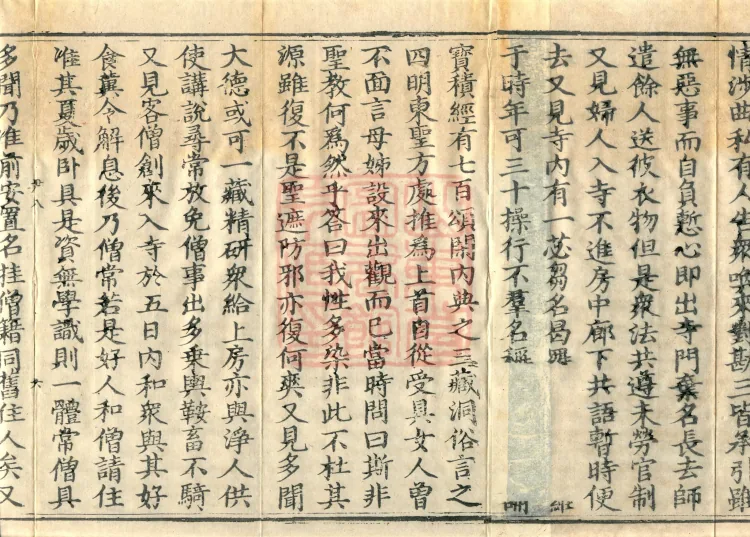 情涉曲私有人告衆喚來對勘三皆承引雖
無惡事而自負慙心即出寺門棄名長去師
遣餘人送彼衣物但是衆法共遵未勞官制
又見婦人入寺不進房中廊下共語暫時便
去又見寺內有一苾芻名曷
于時年可三十操行不羣名稱
寶積經有七百頌閑內典之三藏洞俗言之
四明東聖方處推為上首自從受具女人曾
不面言母姊設來出觀而已當時問曰斯非
聖教何為然乎答曰我性多染非此不杜其
源雖復不是聖遮防邪亦復何爽又見多聞
大德或可一藏精研衆給上房亦與淨人供
使講說尋常放免僧事出多乘輿鞍畜不騎
又見客僧創來入寺於五日內和衆與其好
食冀令解息後乃僧常若是好人和僧請住
准其夏歲卧具是資無學識則一體常僧具
多聞乃准前安置名挂僧籍同舊住人矣又